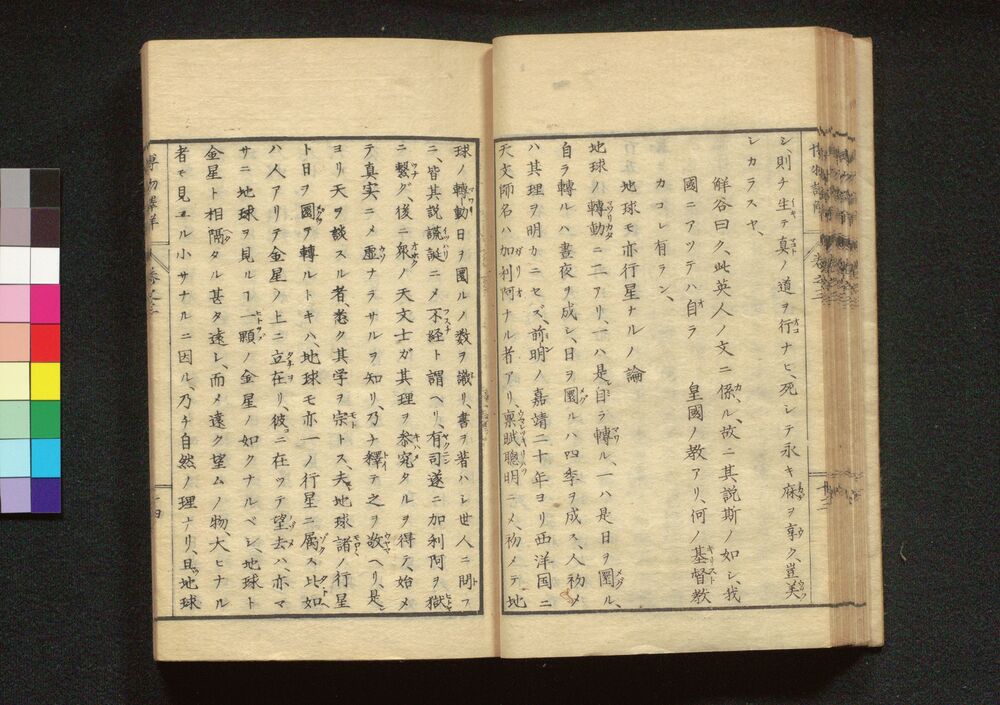 シ、則チ生テ真ノ道ヲ行ナヒ、死シテ永キ庥ヲ享ク、豈美
シカラスヤ、
鮮谷曰ク、此英人ノ文ニ係ル、故ニ其説斯ノ如シ、我
國ニアツテハ自ラ 皇國ノ教アリ、何ノ基督教
カコレ有ラン、
地球モ亦行星ナルノ論
地球ノ轉動ニ二アリ、一ハ是自ラ轉ル、一ハ是日ヲ圜ル、
自ラ轉ルハ晝夜ヲ成シ、日ヲ圜ルハ四季ヲ成ス、人初メ
ハ其理ヲ明カニセズ、前明ノ嘉靖二十年ヨリ西洋国ニ
天文師名ハ加利阿ナル者アリ、稟賦聰明ニメ、初メテ地
球ノ轉動日ヲ圜ルノ数ヲ識リ、書ヲ著ハシ世人ニ問フ
ニ、皆其説謊誕ニメ不経ト謂ヘリ、有司遂ニ加利阿ヲ獄
ニ繋グ、後ニ衆ノ天文士ガ其理ヲ叅究タルヲ得テ、始メ
テ真実ニメ虚ナラサルヲ知リ、乃ナ釋テ之ヲ敬ヘリ、是
ヨリ天ヲ談スル者、悉ク其学ヲ宗トス、夫地球諸ノ行星
ト日ヲ圜ヲ轉ルトキハ、地球モ亦一ノ行星ニ属ス比如
ハ人アリテ金星ノ上ニ立在リ、彼ニ在ツテ望去ハ、亦マ
サニ地球ヲ見ルヿ一顆ノ金星ノ如クナルベシ、地球ト
金星ト相隔タル甚タ遠レ、而メ遠ク望ムノ物、大ヒナル
者モ見ユル小サナルニ因ル、乃チ自然ノ理ナリ、且地球